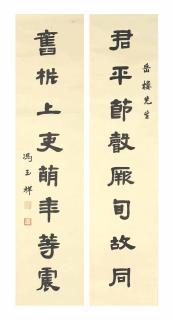 岳樓先生
君平節嗀厥旬故同
舊桃上吏萌年等震
馮玉祥